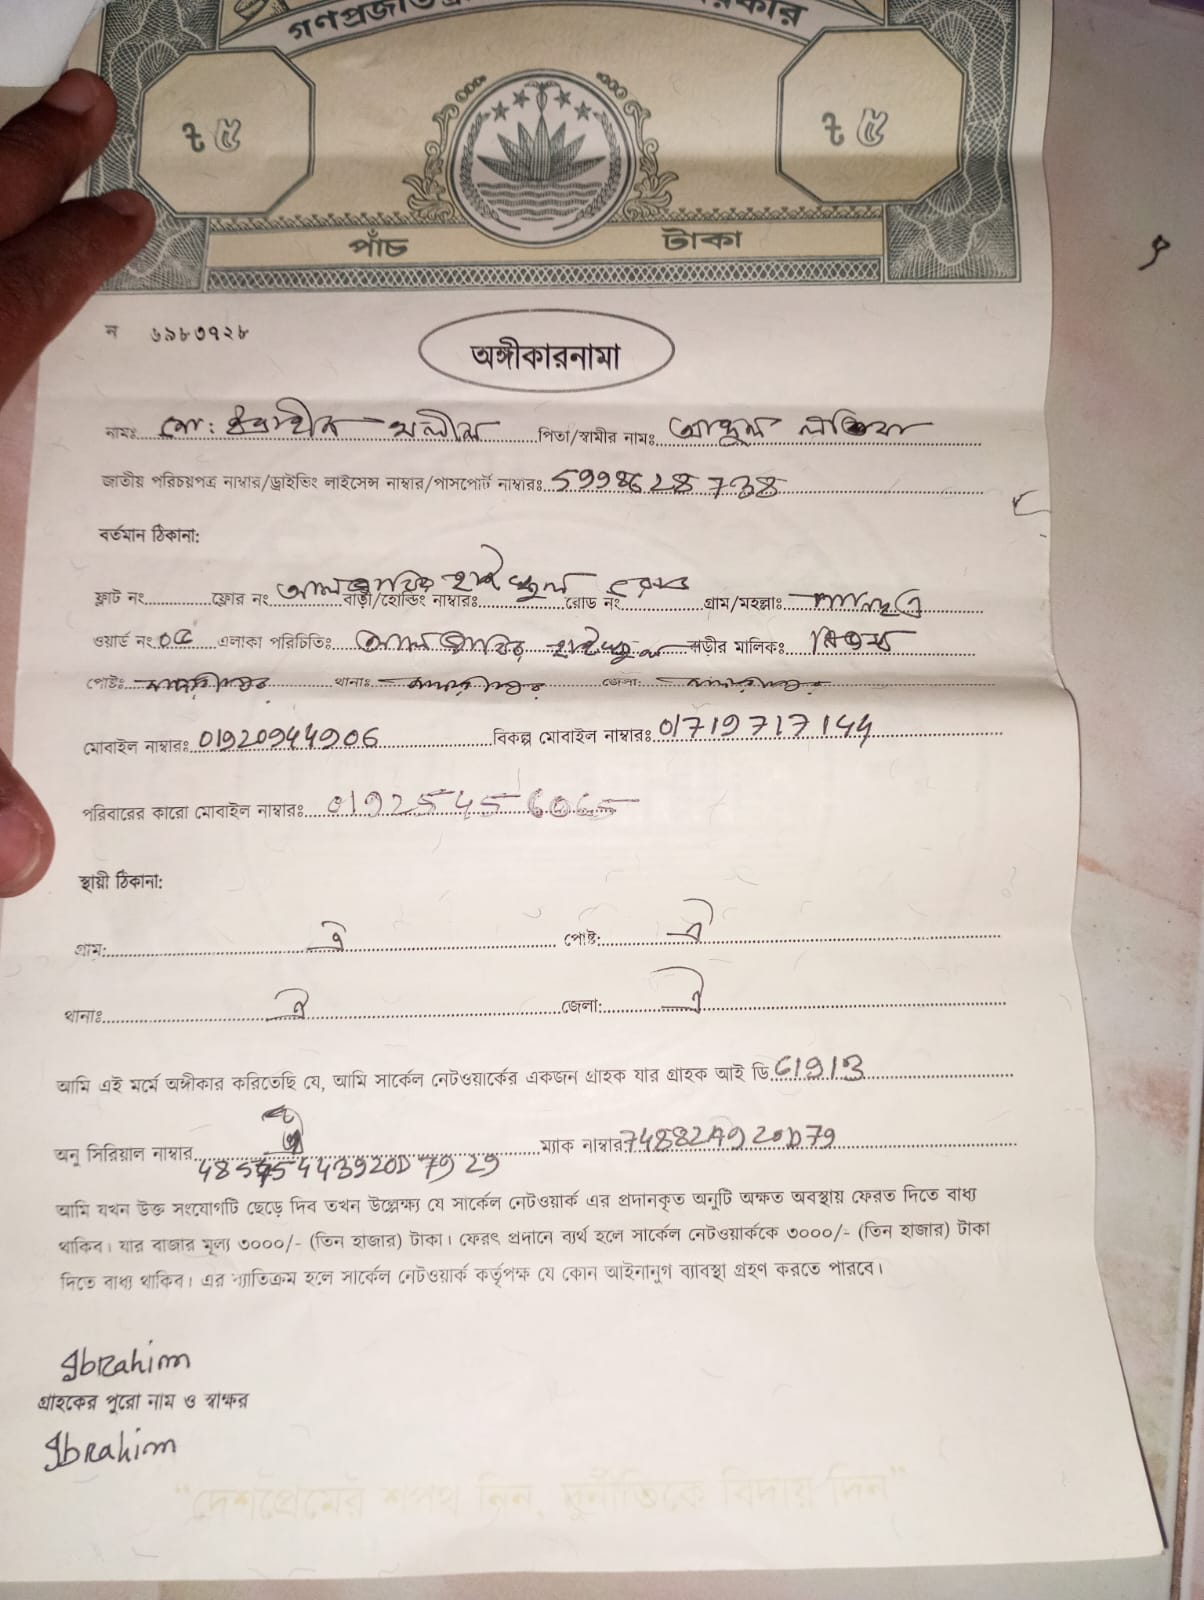 ৳ ৫
৳ ৫
পাঁচ টাকা
ন ৬৯৮৩৭২৮
অঙ্গীকারনামা
নামঃ মো: ইব্রাহীম খলীল পিতা/স্বামীর নামঃ আব্দুল
জাতীয় পরিচয়পত্র নাম্বার/ড্রাইভিং লাইসেন্স নাম্বার/পাসপোর্ট নাম্বারঃ 5998628738
বর্তমান ঠিকানা:
ফ্লাট নং ফ্লোর নং বাড়ী/হোল্ডিং নাম্বারঃ হাই স্কুল রোড নং রোড গ্রাম/মহল্লাঃ
ওয়ার্ড নং ০৫ এলাকা পরিচিতিঃ হাই স্কুল বাড়ীর মালিকঃ নিজস্ব
পোষ্টঃ থানাঃ জেলা:
মোবাইল নাম্বারঃ 01920944906 বিকল্প মোবাইল নাম্বারঃ 01719717144
পরিবারের কারো মোবাইল নাম্বারঃ 01925456065
স্থায়ী ঠিকানা:
গ্রাম: ঐ পোষ্ট: ঐ
থানাঃ ঐ জেলা: ঐ
আমি এই মর্মে অঙ্গীকার করিতেছি যে, আমি সার্কেল নেটওয়ার্কের একজন গ্রাহক যার গ্রাহক আই ডি C1913
অনু সিরিয়াল নাম্বার ম্যাক নাম্বার 74882A920D79
48545443920D7929
আমি যখন উক্ত সংযোগটি ছেড়ে দিব তখন উল্লেক্ষ্য যে সার্কেল নেটওয়ার্ক এর প্রদানকৃত অনুটি অক্ষত অবস্থায় ফেরত দিতে বাধ্য
থাকিব। যার বাজার মূল্য ৩০০০/- (তিন হাজার) টাকা। ফেরৎ প্রদানে ব্যর্থ হলে সার্কেল নেটওয়ার্ককে ৩০০০/- (তিন হাজার) টাকা
দিতে বাধ্য থাকিব। এর ব্যাতিক্রম হলে সার্কেল নেটওয়ার্ক কর্তৃপক্ষ যে কোন আইনানুগ ব্যাবস্থা গ্রহণ করতে পারবে।
Ibrahim
গ্রাহকের পুরো নাম ও স্বাক্ষর
Ibrahim
"দেশপ্রেমের শপথ নিন, দুর্নীতিকে বিদায় দিন"